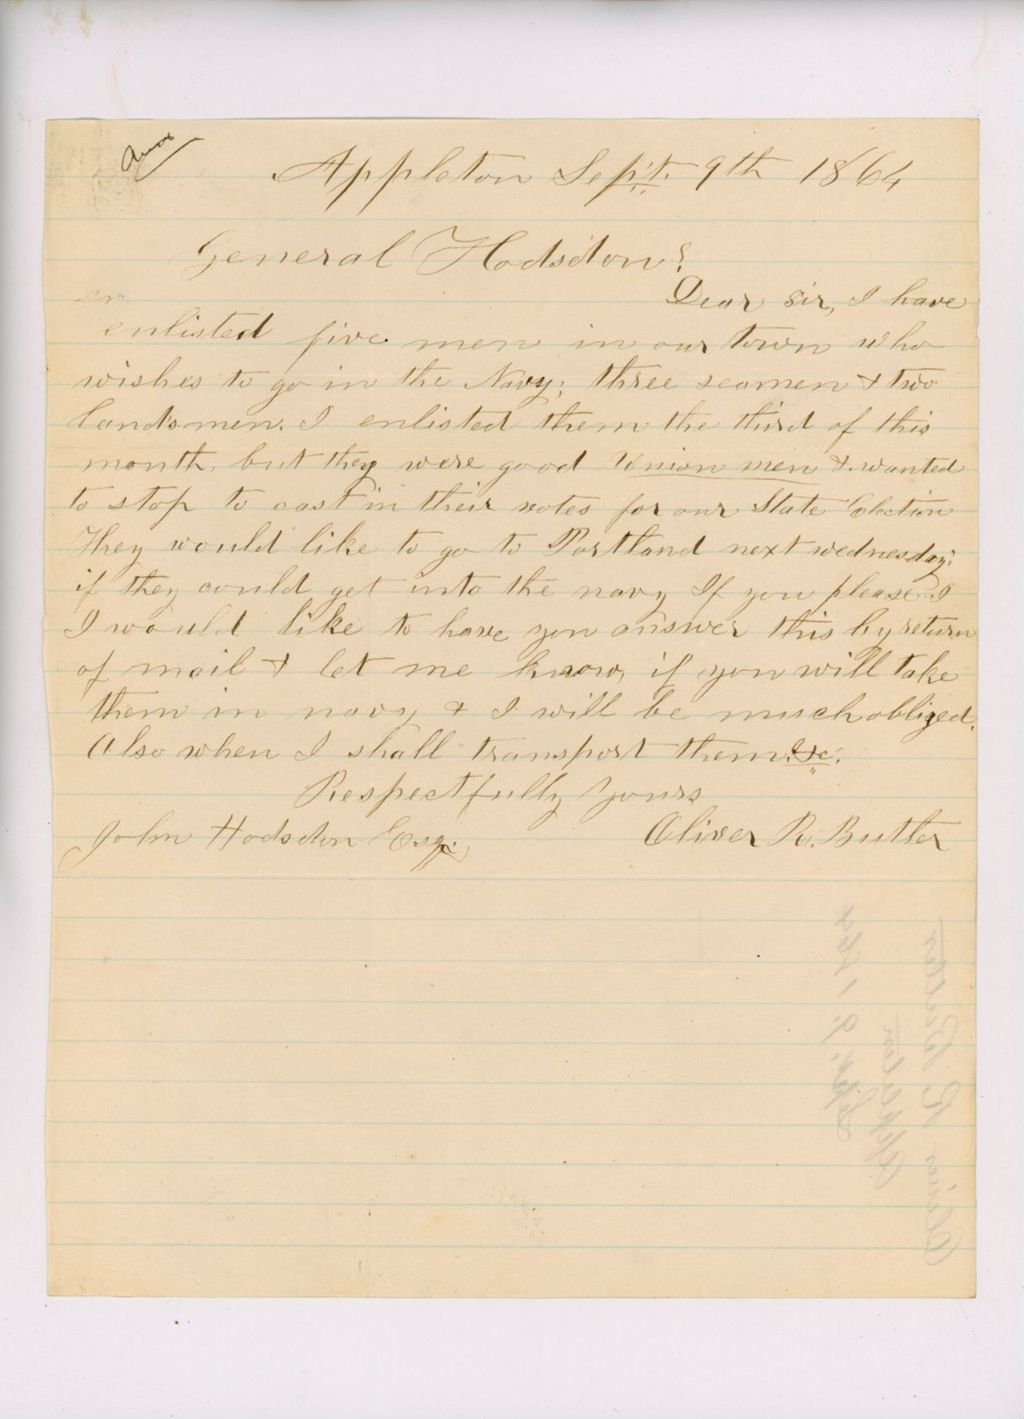 Ansd
Appleton Sept. 9th 1864
General Hodsdon:
Dear Sir, I have
enlisted five men in our town who
wishes to go in the Navy; three seamen & two
landsmen. I enlisted them the third of this
month, but they were good Union men & wanted
to stop to cast in their votes for our State Election
They would like to go to Portland next wednesday;
if they could get into the navy If you please I
I would like to have you answer this by return
of mail & let me know, if you will take
them in navy & I will be much obliged.
Also when I shall transport them &c.
Respectfully Yours
John Hodsdon Esq. Oliver R. Butler